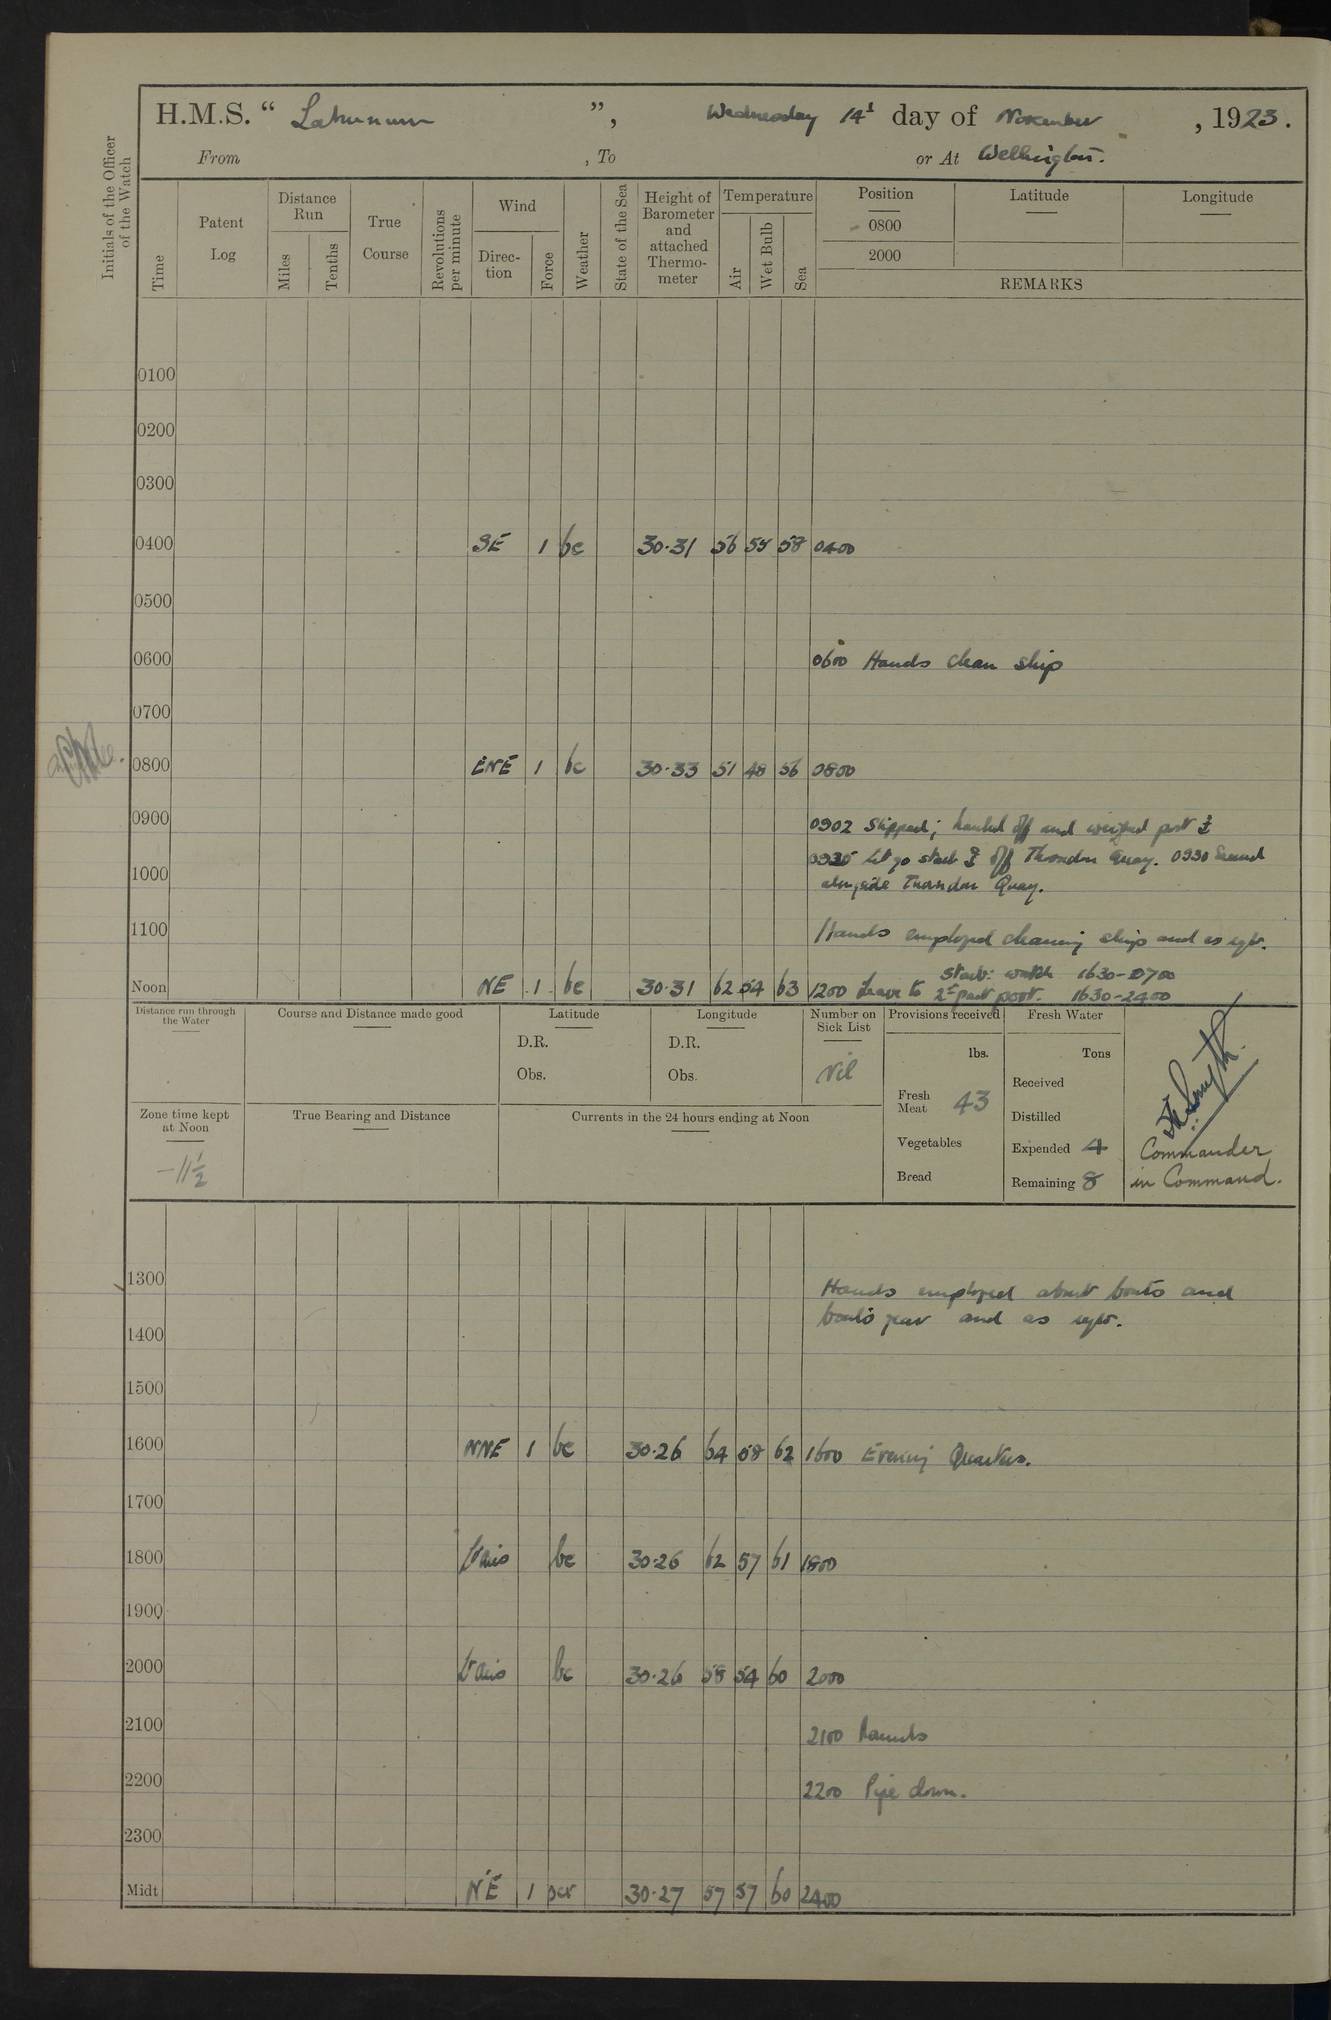 H.M.S. “ Laburnum ”, Wednesday 14th day of November , 1923.
From , To or At Wellington.
Initials of the Officer of the Watch
Time
Patent Log
Distance Run
Miles
Tenths
True Course
Revolutions per minute
Wind
Direction
Force
Weather
State of the Sea
Height of Barometer and attached Thermometer
Temperature
Air
Wet Bulb
Sea
Position Latitude Longitude
0800
2000
REMARKS
0100
0200
0300
0400 SE 1 bc 30.31 56 55 58 0400
0500
0600 0600 Hands clean ship
0700
0800 ENE 1 bc 30.33 51 48 56 0800
0900 0902 Slipped; hauled off and weighed port ⚓
0925 Let go starb ⚓ off Thorndon Quay. 0930 Secured
1000 alongside Thorndon Quay.
1100 Hands employed cleaning ship and as reqr.
Starb: watch 1630-0700
Noon NE 1 bc 30.31 62 54 63 1200 Leave to 2nd part port. 1630-2400
Distance run through the Water
Course and Distance made good
Latitude
D.R.
Obs.
Longitude
D.R.
Obs.
Number on Sick List
Nil
Provisions received
lbs.
Fresh Meat 43
Vegetables
Bread
Fresh Water
Tons
Received
Distilled
Expended 4
Remaining 8
Commander
in Command.
Zone time kept at Noon
-11½
True Bearing and Distance
Currents in the 24 hours ending at Noon
1300 Hands employed about boats and
boats gear and as reqr.
1400
1500
1600 NNE 1 bc 30.26 64 58 62 1600 Evening Quarters.
1700
1800 bc 30.26 62 57 61 1800
1900
2000 bc 30.26 58 54 60 2000
2100 2100 Rounds
2200 2200 Pipe down.
2300
Midt NE 1 30.27 57 57 60 2400